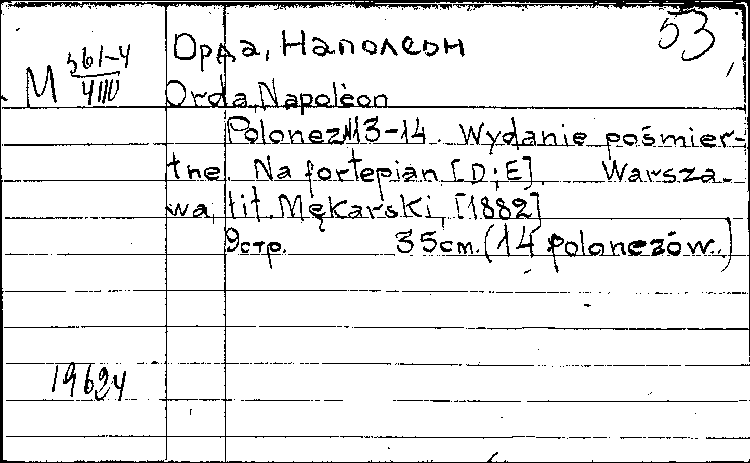 53
Орда, Наполеон
M 361-4
4110
Orda, Napoléon
Polonez N13-14. Wydanie pośmier-
tne. Na fortepian [D; E]. Warsza-
wa, lit. Mękarski, [1882]
9 стр. 35cm. (14 polonezów.)
19624